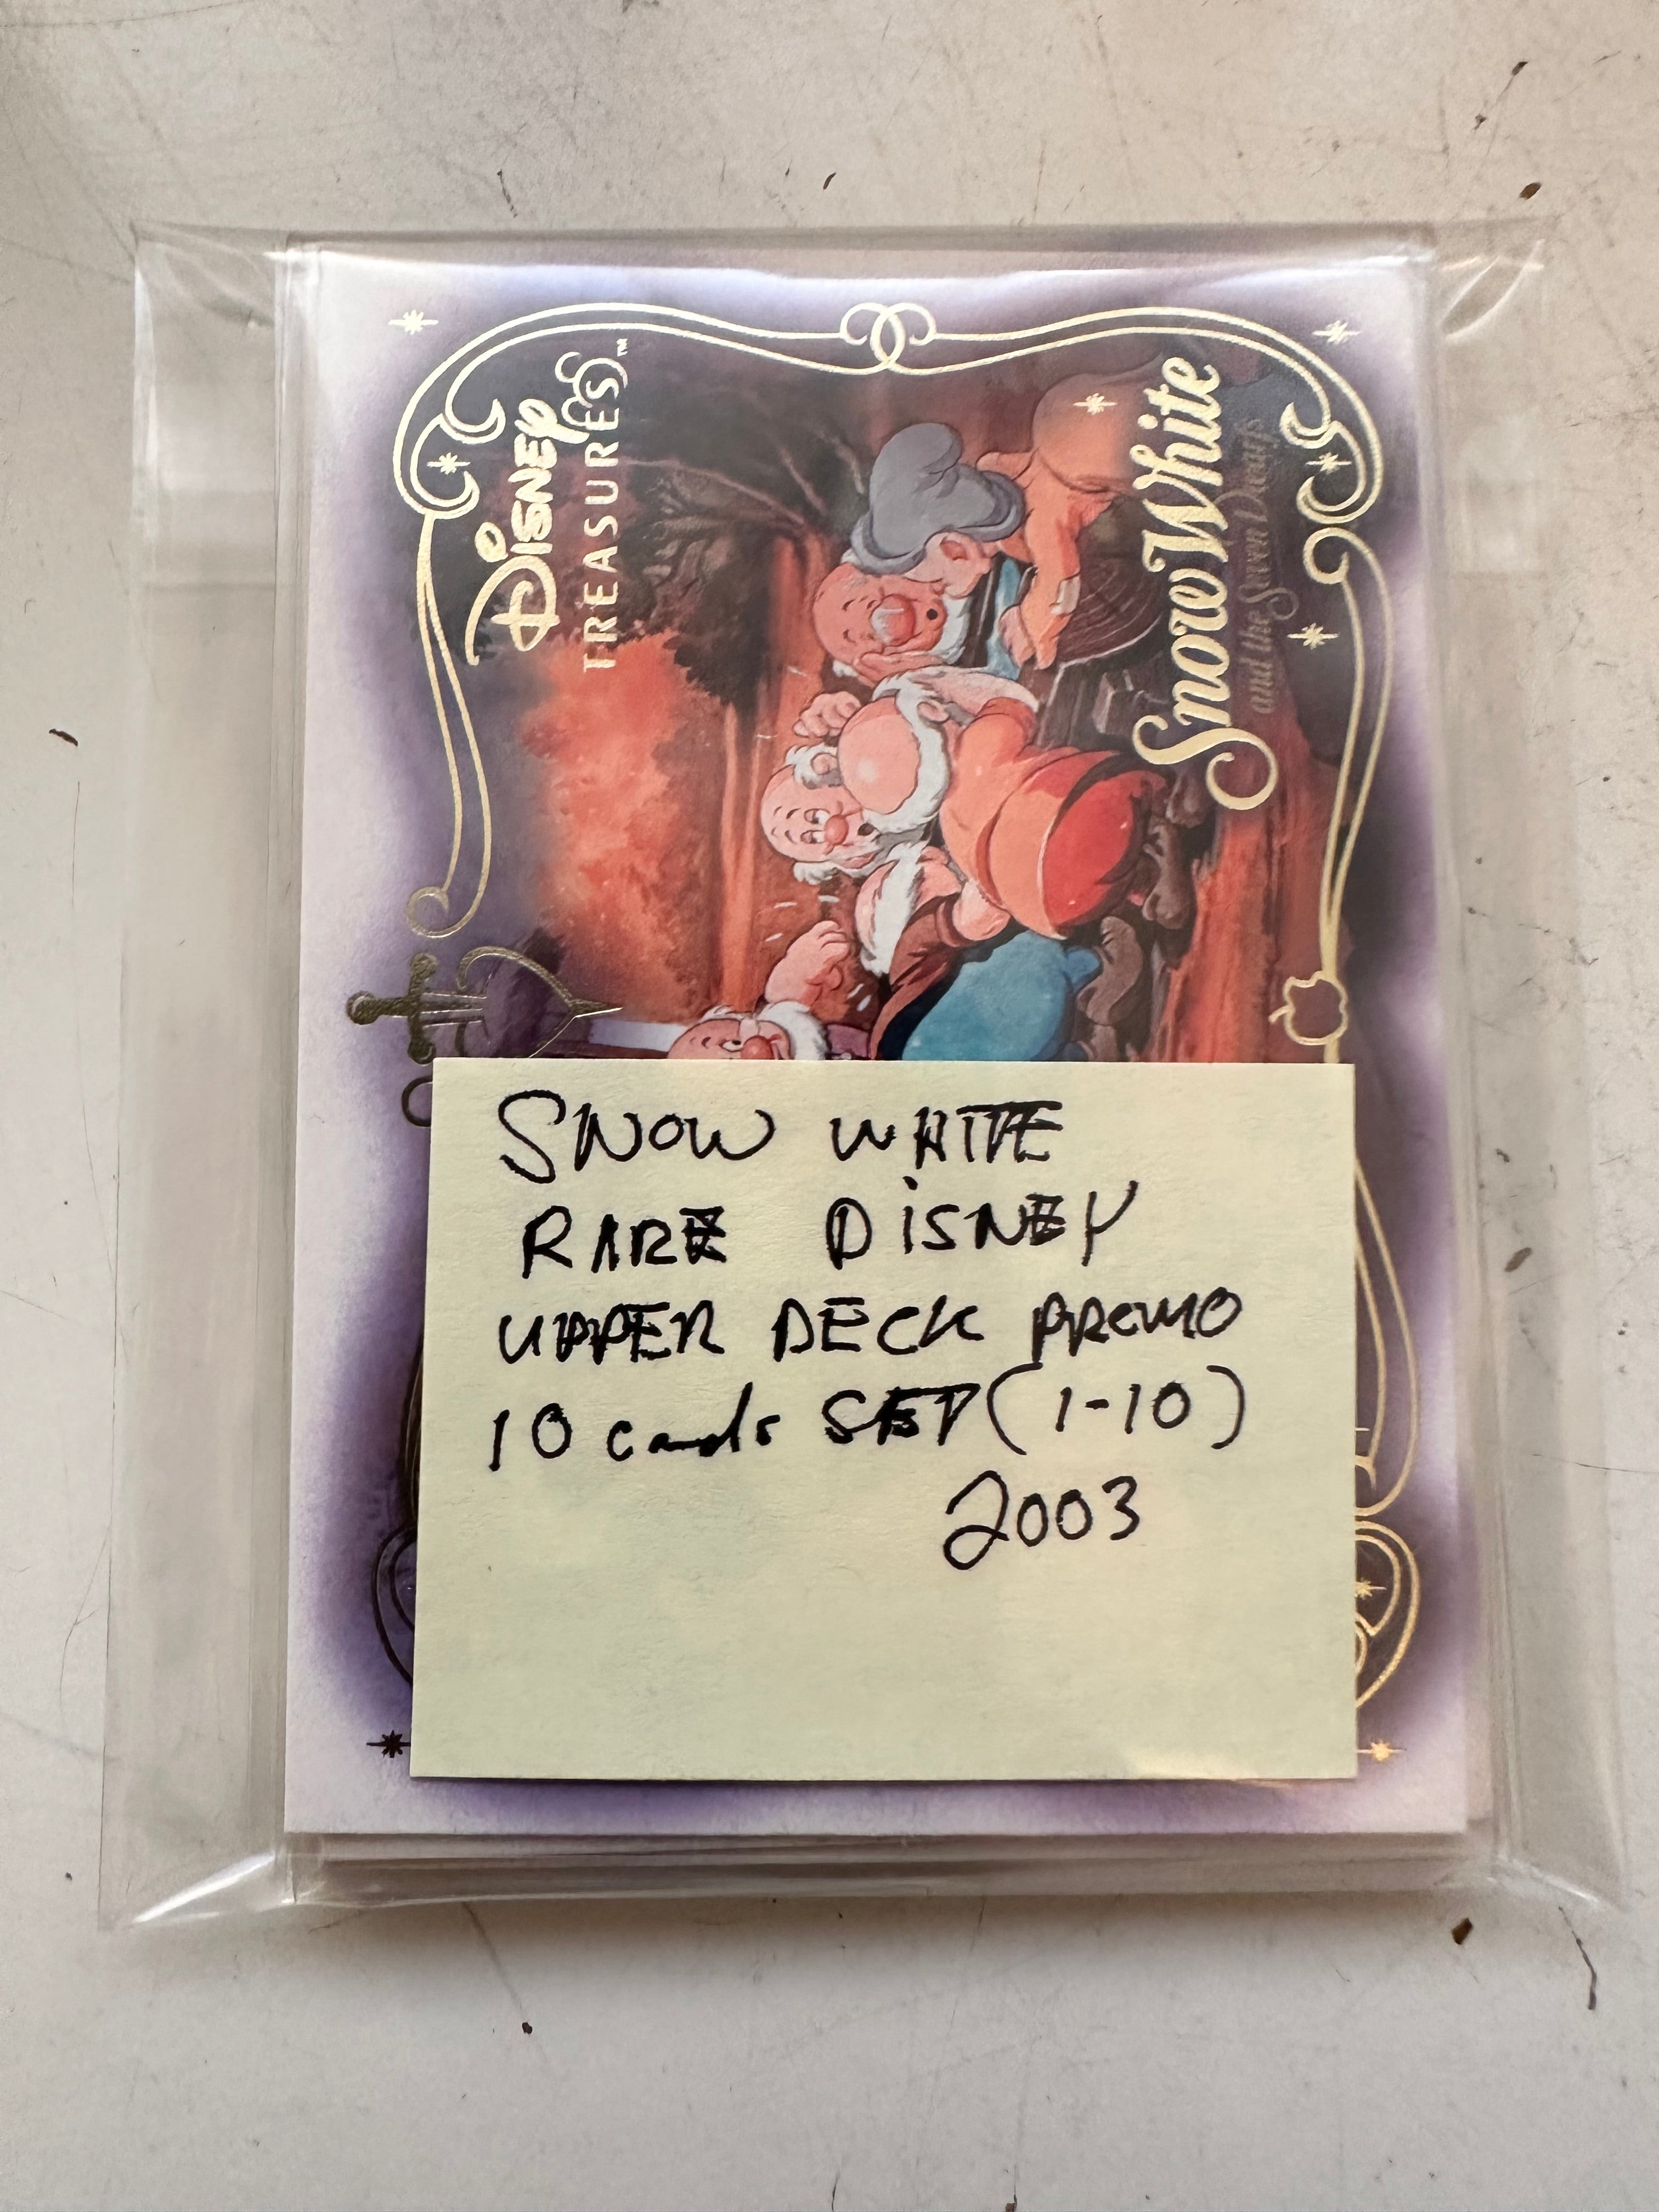 DISNEY
TREASURES™
Snow White
and the Seven Dwarfs
SNOW WHITE
RARE DISNEY
UPPER DECK PROMO
10 cards SET (1-10)
2003